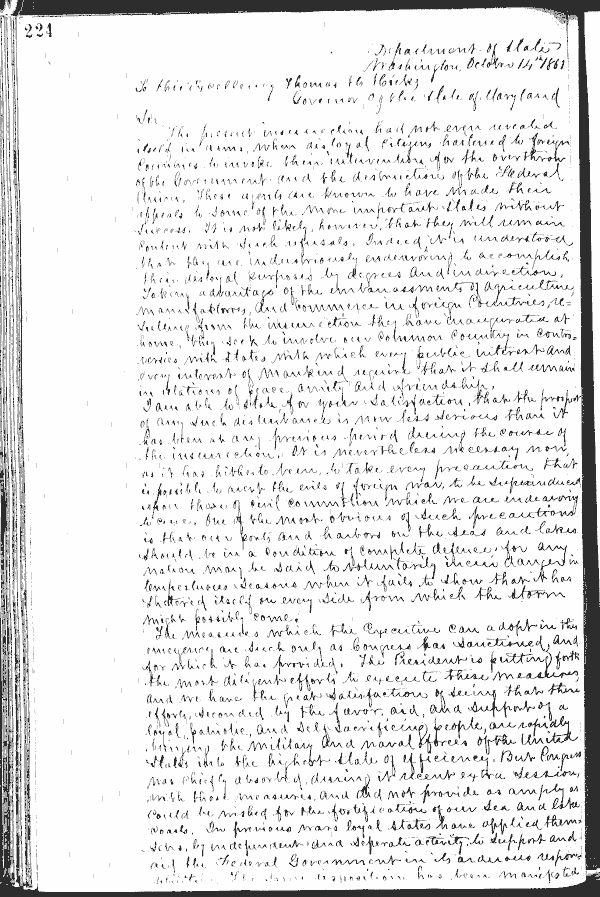 224
Department of State
Washington, October 14th 1861
To His Excellency Thomas H. Hicks
Governor of the State of Maryland
Sir
The present insurrection had not even revealed
itself in arms, when disloyal citizens hastened to foreign
Countries to invoke their intervention for the overthrow
of the Government and the destruction of the Federal
Union. These agents are known to have made their
appeals to some of the more important States without
success. It is not likely, however, that they will remain
content with such refusals. Indeed it is understood
that they are industriously endeavoring to accomplish
their disloyal purposes by degrees and indirection.
Taking advantage of the embarrassments of agriculture,
manufactures, and commerce in foreign Countries, re-
sulting from the insurrection they have inaugurated at
home, they seek to involve our common Country in contro-
versies with States with which every public interest and
every interest of mankind require that it shall remain
in relations of peace, amity and friendship.
I am able to state, for your satisfaction, that the prospect
of any such disturbance is now less serious than it
has been at any previous period during the course of
the insurrection. It is nevertheless necessary now,
as it has hitherto been, to take every precaution that
is possible to avert the evils of foreign war, to be superinduced
upon those of civil commotion which we are endeavoring
to cure. One of the most obvious of such precautions
is that our ports and harbors on the seas and lakes
should be in a condition of complete defence, for any
nation may be said to voluntarily incur danger in
tempestuous seasons when it fails to show that it has
sheltered itself on every side from which the storm
might possibly come.
The measures which the Executive can adopt in this
emergency are such only as Congress has sanctioned, and
for which it has provided. The President is putting forth
the most diligent efforts to execute these measures
and we have the great satisfaction of seeing that these
efforts, seconded by the favor, aid, and support of a
loyal, patriotic, and self sacrificing people, are rapidly
bringing the military and naval forces of the United
States into the highest state of efficiency. But Congress
was chiefly absorbed, during it recent extra session,
with those measures, and did not provide as amply as
could be wished for the fortification of our sea and lake
coasts. In previous wars loyal States have applied them-
selves, by independent and seperate activity, to support and
aid the Federal Government in its arduous respon-
sibilities. The same disposition has been manifested